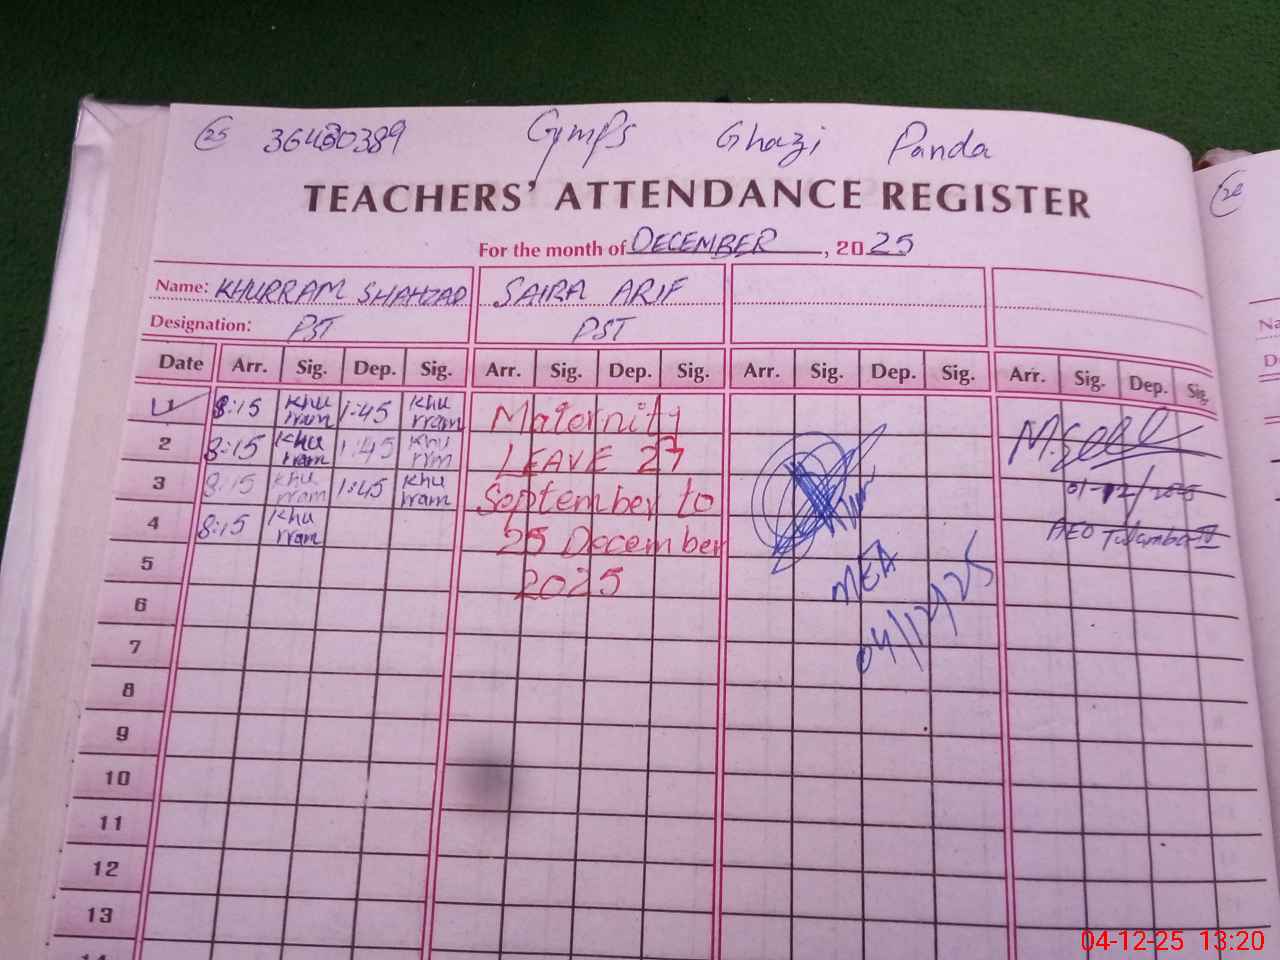 25 36430389 Gmmps Ghazi Panda
TEACHERS' ATTENDANCE REGISTER
For the month of DECEMBER, 2025
Name: KHURRAM SHAHZAD SAIRA ARIF
Designation: PST PST
Date Arr. Sig. Dep. Sig. Arr. Sig. Dep. Sig. Arr. Sig. Dep. Sig. Arr. Sig. Dep. Sig.
1 8:15 Khurram 1:45 Khurram Maternity
2 8:15 Khurram 1:45 Khurrm LEAVE 27
3 8:15 Khurram 1:45 Khurram September to 01-12/2025
4 8:15 Khurram 25 December AEO Tulamba
5 2025 MEA
6 04/12/25
7
8
9
10
11
12
13
14
26
04-12-25 13:20